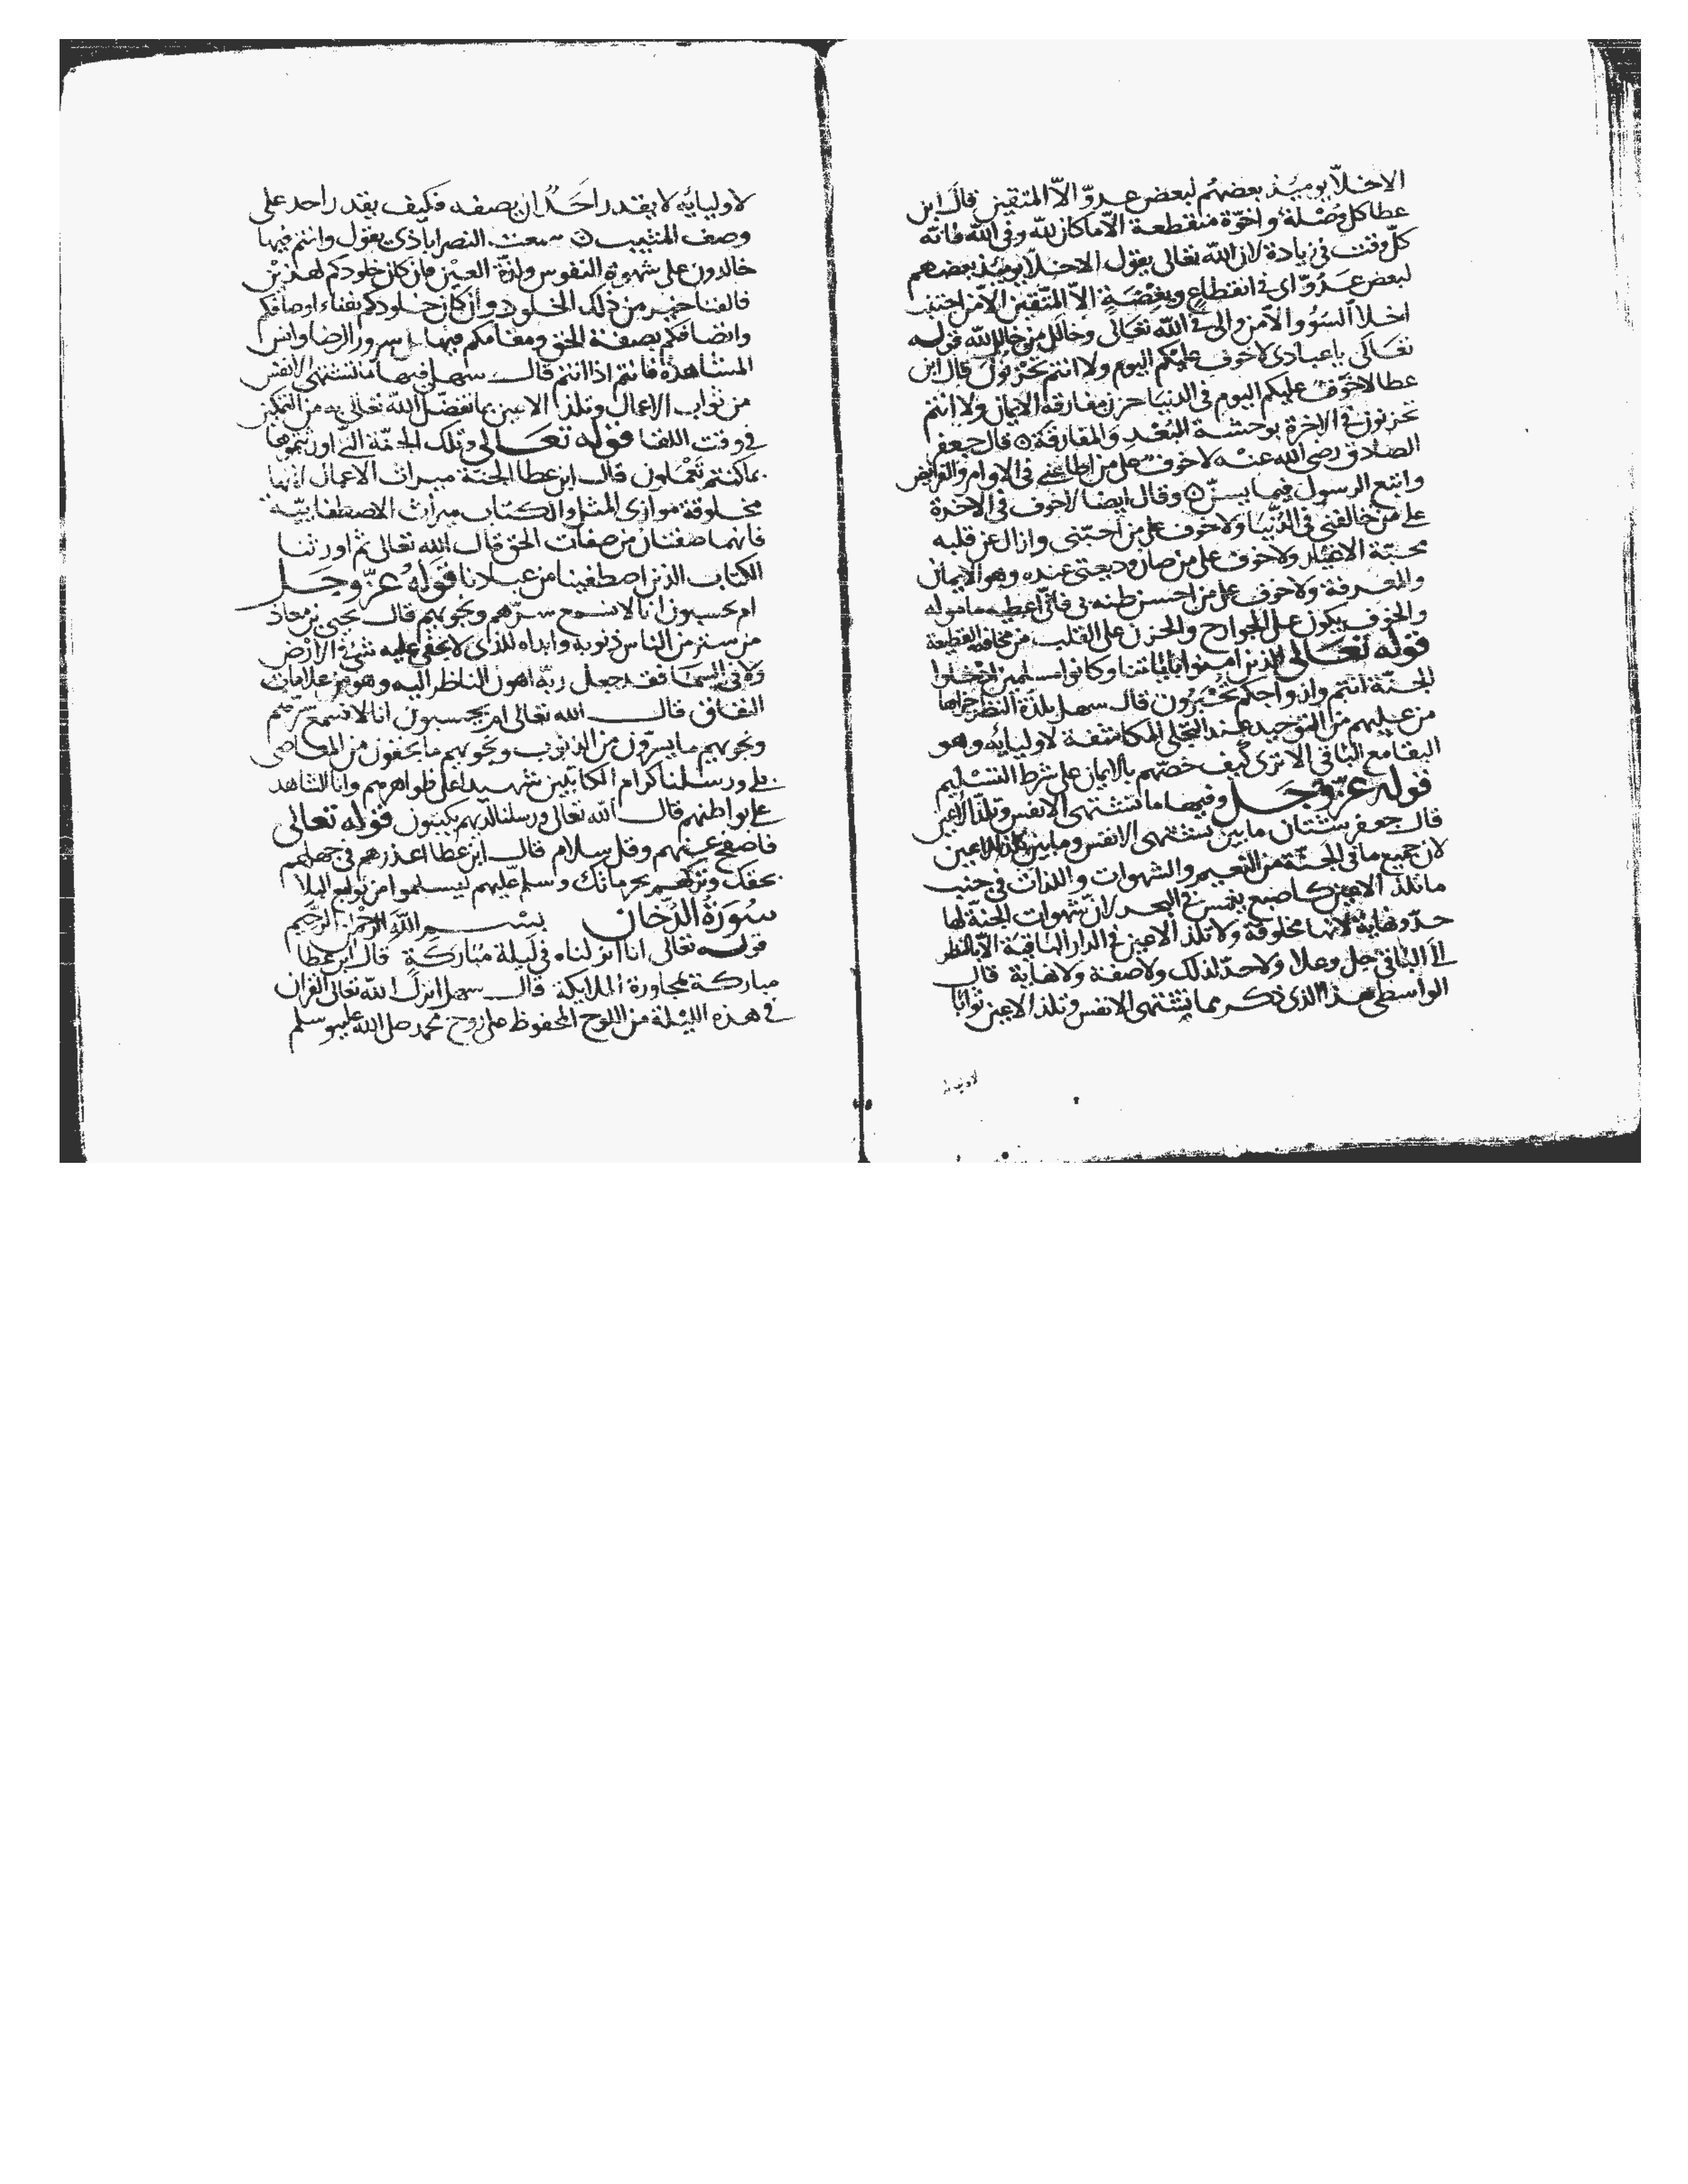 الاخلّا يوميذ بعضهم لبعض عدوّ الاّ المتقين قال ابن
عطا كل وصلة واخوّة منقطعة الاّ ما كان لله وفى الله فانّه
كلّ وقت فى زيادة لان الله تعالى يقول الاخلّا يوميذ بعضهم
لبعض عدوّ اى فى انقطاع وبغضة الاّ المتّقين الاّ من اجتنب
اخلّا السّوو الا من والى فى الله تعالى وخالل من خالل الله قوله
تعالى يا عبادى لا خوف عليكم اليوم ولا انتم تحزنون قال ابن
عطا لا خوف عليكم اليوم فى الدنيا حزن مفارقة الايمان ولا انتم
تحزنون فى الاخرة بوحشة البعد والمفارقة قال جعفر
الصادق رضى الله عنه لا خوف على من اطاعنى فى الاوامر والفرايض
واتبع الرسول فيما يسنّ وقال ايضا لا خوف فى الاخرة
على من خافنى فى الدّنيا ولا خوف على من احبّنى وازال عن قلبه
محبّة الاغيار ولا خوف على من صان وديعتى عنده وهو الايمان
والمعرفة ولا خوف على من احسن ظنه بى فانّى اعطيه ما موله
والخوف يكون على الجوارح والحزن على القلب من مخافة القطيعة
قوله تعالى الذين امنوا باياتنا وكانوا مسلمين ادخلوا
الجنّة انتم وازواجكم تحبرون قال سهل بلذّة النظر جزاما
من عليهم من التوحيد عند التجلى المكاشفة لاوليايه وهو
البقا مع الباقى الا ترى كيف خصّهم بالايمان على شرط التسليم
قوله عزّ وجل وفيها ما تشتهى الانفس وتلذّ الاعين
قال جعفر شتّان ما بين تشتهى الانفس وما بين تلذ الاعين
لان جميع ما فى الجنّة من النّعيم والشهوات واللذات فى جنب
ما تلذ الاعين كاصبع يغمس فى البحر لانّ شهوات الجنّة لها
حدّ ونهاية لانها مخلوقة ولا تلذ الاعين فى الدار الباقية الاّ بالنظر
الى الباقى جلّ وعلا ولا حدّ لذلك ولا صفة ولا نهاية قال
الواسطى هذا الذى ذكر مما تشتهى الانفس وتلذ الاعين ثوابا
لاوليايه
لاوليايه لا يقدر احد ان يصفه فكيف يقدر احد على
وصف المثيب سمعت النصراباذى يقول وانتم فيها
خالدون على شهوة النفوس ولذّة العين فان كان خلودكم لهذين
فالفنا خير من ذلك الخلود وان كان خلودكم بفناء اوصافكم
واتصافكم بصفة الحق ومقامكم فيها سرور الرضا وانس
المشاهدة فانتم اذا انتم قال سهل فيها ما تشتهى الانفس
من ثواب الاعمال وتلذ الاعين بما تفضّل الله تعالى به من التمكين
فى وقت اللقا قوله تعالى وتلك الجنّة التى اورثتموها
بما كنتم تعملون قال ابن عطا الجنة ميراث الاعمال لانها
مخلوقة موازى المثل والكتاب ميراث الاصطفائيّة
فانهما صفتان من صفات الحق قال الله تعالى ثم اورثنا
الكتاب الذين اصطفينا من عبادنا قوله عزّ وجل
ام يحسبون انا لا نسمع سرّهم ونجويهم قال يحيى بن معاذ
من ستر من الناس ذنوبه وابداه للذى لا يخفى عليه شى فى الارض
ولا فى السما فقد جعل ربّه اهون الناظر اليه وهو من علامات
النفاق قال الله تعالى ام يحسبون انا لا نسمع سرّهم
ونجويهم ما يسرّون من الذنوب ونجويهم ما يخفون من المعاصى
بلى ورسلنا كرام الكاتبين شهيدا على ظواهرهم وانا الشاهد
على بواطنهم قال الله تعالى ورسلنا لديهم يكتبون قوله تعالى
فاصفح عنهم وقل سلام قال ابن عطا اعذرهم فى جهلهم
بحقك وتركهم حرمانك وسلم عليهم ليسلموا من توابع البلا
سورة الدّخان بسم الله الرحمن الرحيم
قوله تعالى انا انزلناه فى ليلة مباركة قال ابن عطا
مباركة لمجاورة الملايكة قال سهل انزل الله تعالى القران
فى هذه الليلة من اللوح المحفوظ على روح محمد صلى الله عليه وسلم